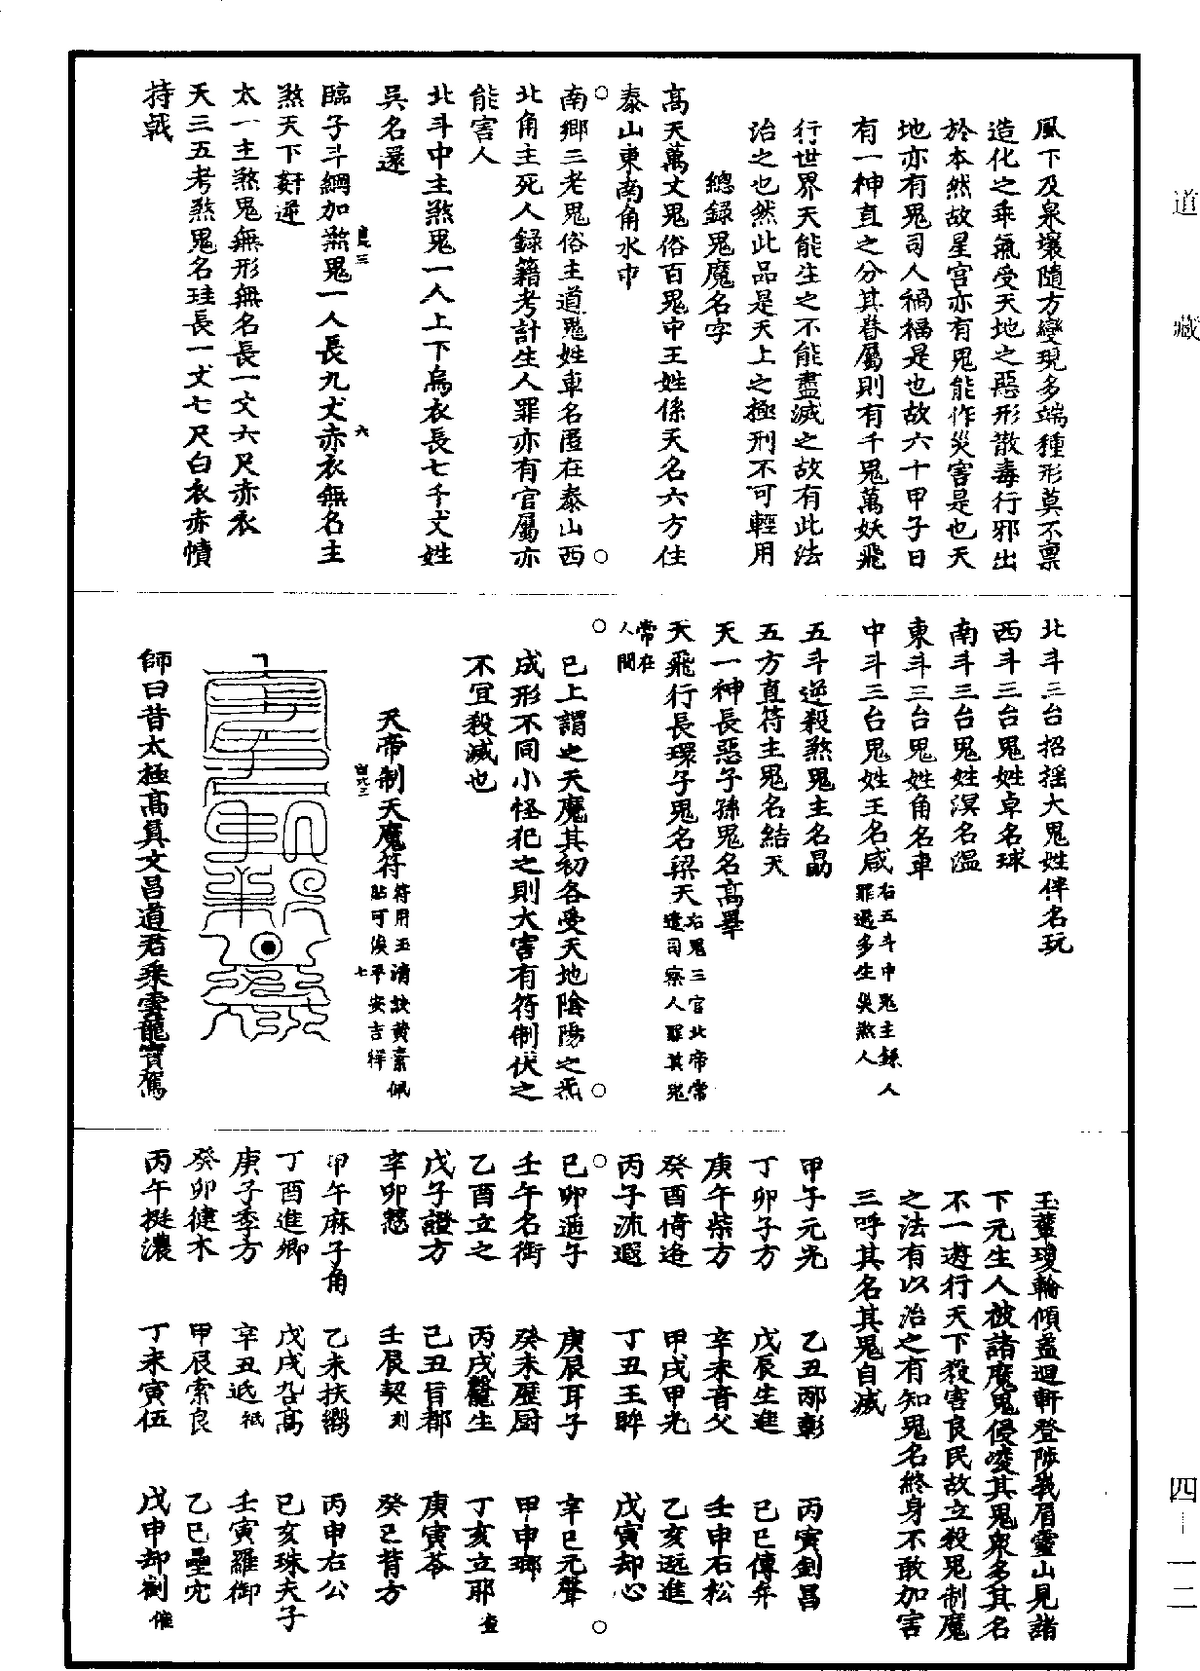 道藏
風下及泉壤隨方變現多端種形莫不禀
造化之乖氣受天地之惡形散毒行邪出
於本然故星宫亦有鬼能作災害是也天
地亦有鬼司人禍福是也故六十甲子日
有一神直之分其眷屬則有千鬼萬妖飛
行世界天能生之不能盡滅之故有此法
治之也然此品是天上之極刑不可輕用
總録鬼魔名字
高天萬丈鬼俗百鬼中王姓係天名六方住
泰山東南角水中
南鄉三老鬼俗主道鬼姓車名匿在泰山西
北角主死人録籍考計生人罪亦有官屬亦
能害人
北斗中主煞鬼一人上下烏衣長七千丈姓
吴名還
臨子斗綱加煞鬼一人長九丈赤衣無名主
煞天下姧逆
太一主煞鬼無形無名長一丈六尺赤衣
天三五考煞鬼名珪長一丈七尺白衣赤幘
持戟
北斗三台招摇大鬼姓伴名玩
西斗三台鬼姓卓名球
南斗三台鬼姓溟名温
東斗三台鬼姓角名車
中斗三台鬼姓王名咸右五斗中鬼主録人罪過多生災煞人
五斗逆殺煞鬼主名勗
五方直符主鬼名結天
天一神長惡子孫鬼名高羣
天飛行長環子鬼名梁天右鬼三官北帝常遣司察人罪其鬼
常在人間
已上謂之天魔其初各受天地陰陽之炁
成形不同小怪犯之則大害有符制伏之
不宜殺滅也
天帝制天魔符符用玉清訣黄素佩貼可俟平安吉祥
師曰昔太極高真文昌道君乘雲龍寶駕
玉輦瓊輪傾蓋迴軒登陟峩眉靈山見諸
下元生人被諸魔鬼侵凌其鬼衆多其名
不一遊行天下殺害良民故立殺鬼制魔
之法有以治之有知鬼名終身不敢加害
三呼其名其鬼自滅
甲子元光 乙丑郍彰 丙寅釗昌
丁卯子方 戊辰生進 己巳傳弅
庚午柴方 辛未音父 壬申石松
癸酉倚逄 甲戌甲光 乙亥逺進
丙子流遐 丁丑王眸 戊寅却心
己卯遁子 庚辰耳子 辛巳元聲
壬午名衙 癸未歷厨 甲申瑯
乙酉立之 丙戌翳生 丁亥立耶查
戊子證方 己丑旨都 庚寅苓
辛卯慗 壬辰契刾 癸巳昔方
甲午麻子角 乙未扶繝 丙申右公
丁酉進卿 戊戌㕦高 己亥珠夫子
庚子季方 辛丑逓祇 壬寅羅御
癸卯健木 甲辰索良 乙巳壘宂
丙午挺濃 丁未寅伍 戊申却劇催
四一一二